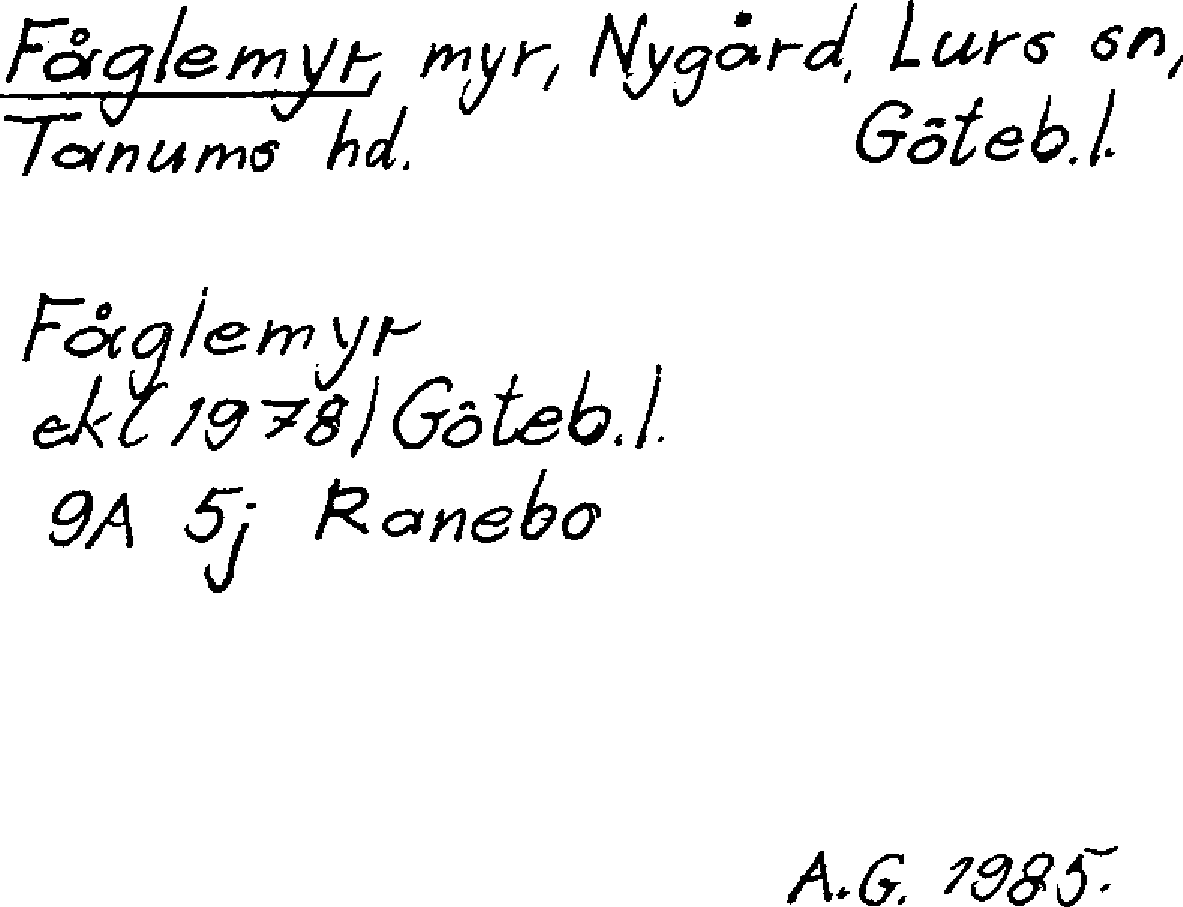 Fåglemyr, myr, Nygård, Lurs sn,
Tanums hd. Göteb.l.
Fåglemyr
ek (1978) Göteb.l.
9A 5j Ranebo
A.G. 1985.